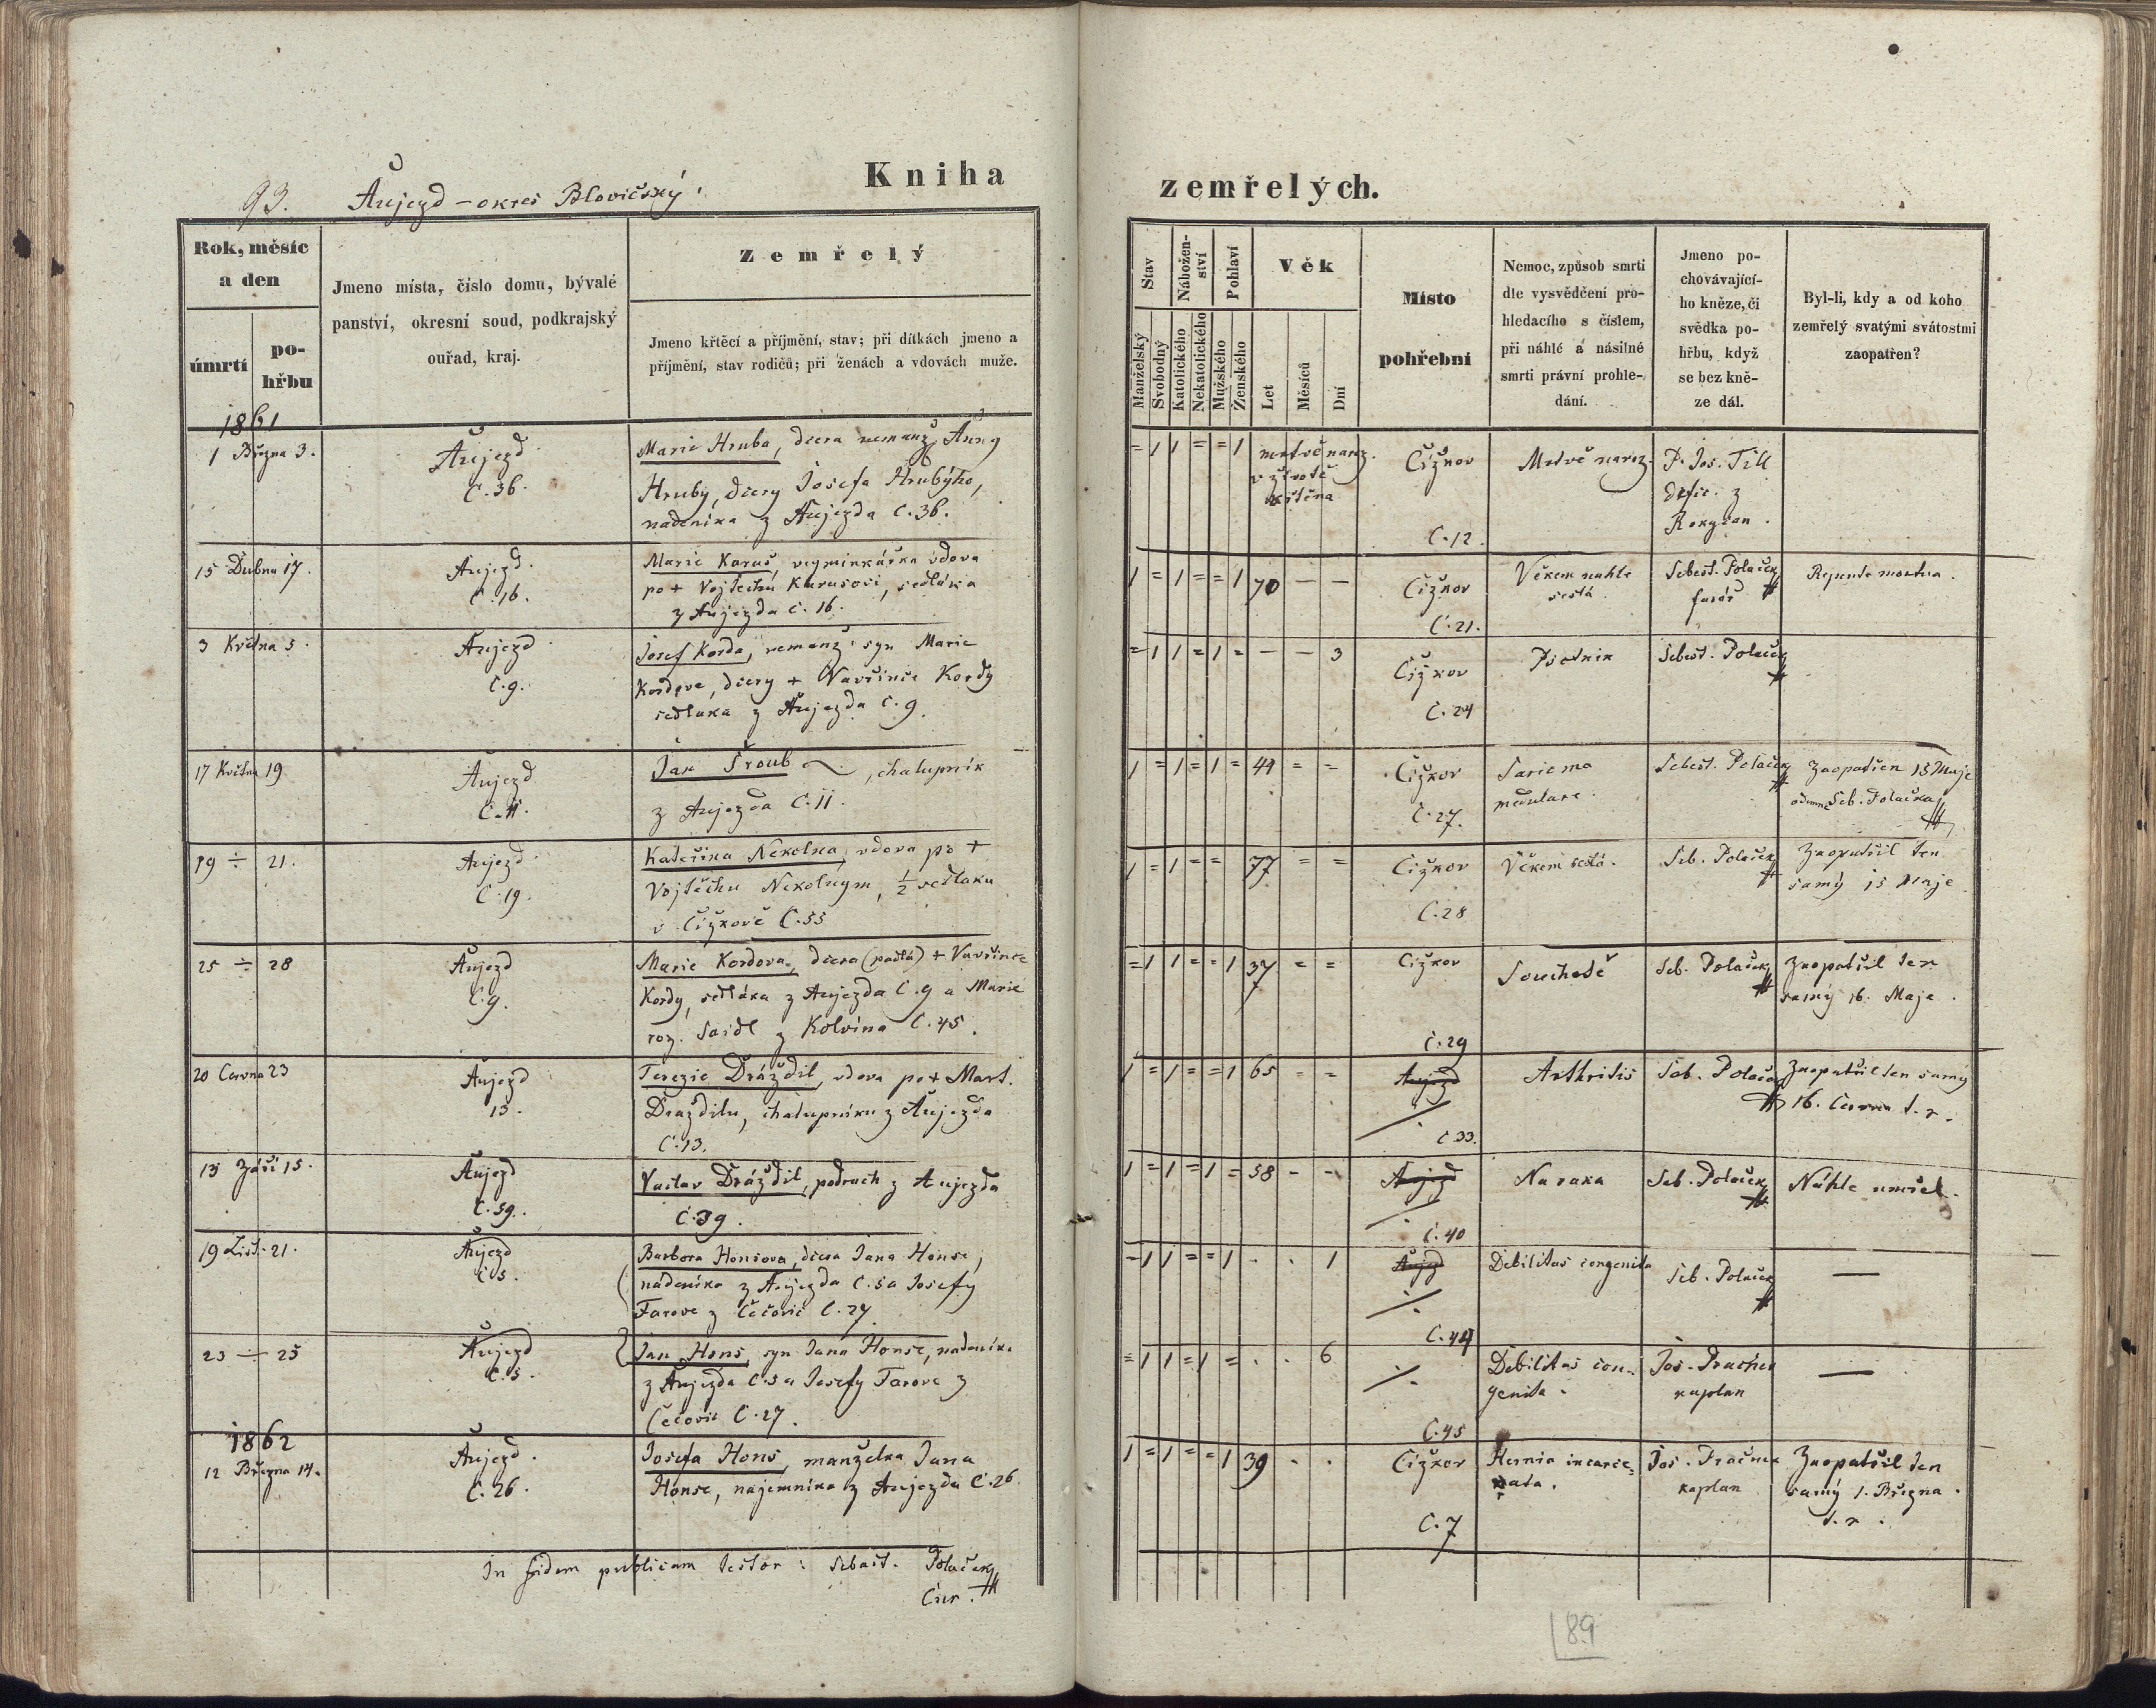 93. Aujezd – okres Blovičský.
Kniha
Rok, měsíc
a den
úmrtí
po-
hřbu
Jmeno místa, číslo domu, bývalé
panství, okresní soud, podkrajský
ouřad, kraj.
Zemřelý
Jmeno křtěcí a příjmění, stav; při dítkách jmeno a
příjmění, stav rodičů; při ženách a vdovách muže.
1861
1 Března 3.
Aujezd
C. 36.
Marie Hruba, dcera nemanž. Anny
Hruby, dcery Josefa Hrubýho,
nadenika z Aujezda C. 36.
15 Dubna 17.
Aujezd.
C. 16.
Marie Karas, vyminkářka vdova
po + Vojtěchu Karasovi, sedláka
z Aujezda C. 16.
3 Května 5.
Aujezd
C. 9.
Josef Korda, nemanž. syn Marie
Kordove, dcery + Vavřince Kordy
sedlaka z Aujezda C. 9.
17 Května 19
Aujezd
C. 11.
Jan Šroub, chalupník
z Aujezda C. 11.
19 ÷ 21.
Aujezd
C. 19.
Kateřina Nekolna, vdova po +
Vojtěchu Nekolným, 1/2 sedlaku
v Čižkově C. 55
25 ÷ 28
Aujezd
C. 9.
Marie Kordova, dcera (padlá) + Vavřince
Kordy, sedláka z Aujezda C. 9 a Marie
roz. Saidl z Kolvína C. 45.
20 Června 23
Aujezd
13.
Terezie Dráždil, vdova po + Mart.
Draždilu, chalupníku z Aujezda
C. 13.
13 Září 15.
Aujezd
C. 39.
Vaclav Dráždil, podruh z Aujezda
C. 39.
19 List. 21.
Aujezd
C 5.
Barbora Honsova, dcera Jana Honse,
nádenika z Aujezda C. 5 a Josefy
Farove z Čečovic C. 27.
23 ÷ 25
Aujezd
C. 5.
Jan Hons, syn Jana Honse, nadenika
z Aujezda C. 5 a Josefy Farove z
Čečovic C. 27.
1862
12 Března 14.
Aujezd.
C. 26.
Josefa Hons, manželka Jana
Honse, nájemnika z Aujezda C. 26.
In fidem publicam testor: Sebast. Polaček
Cur.
zemřelých.
Stav
Nábožen-
ství
Pohlaví
Věk
Manželský
Svobodný
Katolického
Nekatolického
Mužského
Ženského
Let
Měsíců
Dní
Místo
pohřební
Nemoc, způsob smrti
dle vysvědčení pro-
hledacího s číslem,
při náhlé a násilné
smrti právní prohle-
dání.
Jmeno po-
chovávající-
ho kněze, či
svědka po-
hřbu, když
se bez kně-
ze dál.
Byl-li, kdy a od koho
zemřelý svatými svátostmi
zaopatřen?
= 1 1 = = 1 mrtvě naroz.
v životě
křtěna
Čižkov
C. 12.
Mrtvě naroz.
P. Jos. Till
Defic. z
Rokycan.
1 = 1 = = 1 70 — —
Čižkov
C. 21.
Věkem nahle
sešlá.
Sebest. Polaček
farář
Repente mortua.
= 1 1 = 1 = — — 3
Čižkov
C. 24
Psotnik
Sebest. Polaček
1 = 1 = 1 = 49 = =
Čižkov
C. 27.
medulare.
Sebest. Polaček
Zaopatřen 15 Maje
odemne Seb. Polačka
1 = 1 = = 77 = =
Čižkov
C. 28
Věkem sešlá.
Seb. Polaček
Zaopatřil ten
samý 15 Maje
= 1 1 = = 1 37 = =
Čižkov
C. 29
Souchotě
Seb. Polaček
Zaopatřil ten
samý 16. Maje.
1 = 1 = = 1 65 - =
Aujezd
÷
C. 33.
Arthritis
Seb. Polaček
Zaopatřil ten samý
16. Června t. r.
1 = 1 = 1 = 58 - -
Aujezd
÷
C. 40
Seb. Polaček
Náhle umřel.
= 1 1 = = 1 . . 1
Aujezd
÷
C. 44
Debilitas congenita
Seb. Polaček
—
= 1 1 = 1 = . . 6
÷
C. 45
Debilitas con-
genita.
kaplan
—
1 = 1 = = 1 39 . .
Čižkov
C. 7
Hernia incarce-
rata.
kaplan
Zaopatřil ten
samý 1. Března.
t. r.
89